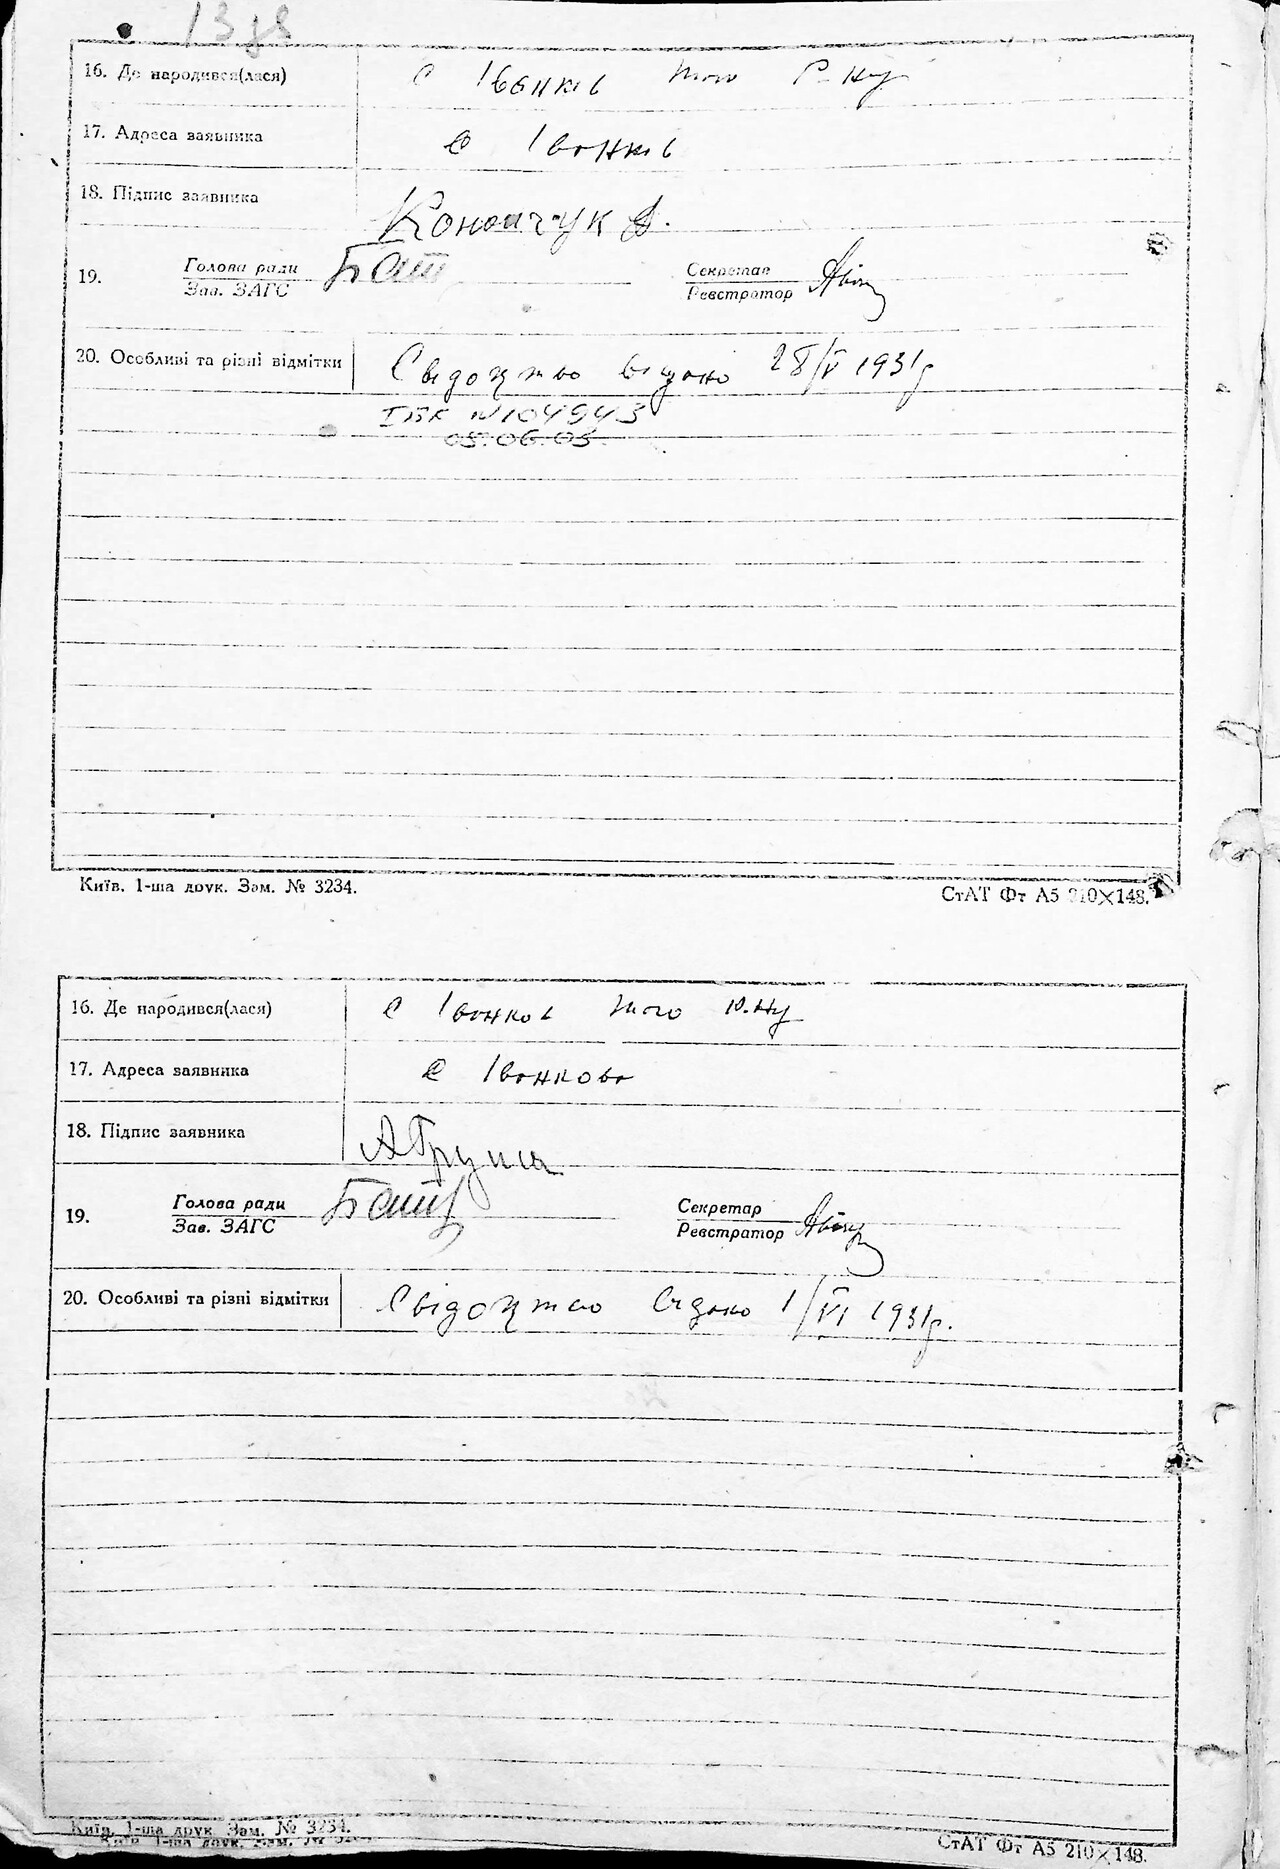 16. Де народився(лася) с Іванків того р-ну
17. Адреса заявника с Іванків
18. Підпис заявника Конончук А.
19. Голова ради Секретар
Зав. ЗАГС Реєстратор
20. Особливі та різні відмітки Свідоцтво видано 28/V 1931р
№104943
05.06.03.
Київ. 1-ша друк. Зам. № 3234. СтАТ Фт А5 210×148.
16. Де народився(лася) с Іванків того р-ну
17. Адреса заявника с Іванково
18. Підпис заявника АГруша
19. Голова ради Секретар
Зав. ЗАГС Реєстратор
20. Особливі та різні відмітки Свідоцтво видано 1/VI 1931р.
Київ. 1-ша друк. Зам. № 3234. СтАТ Фт А5 210×148.